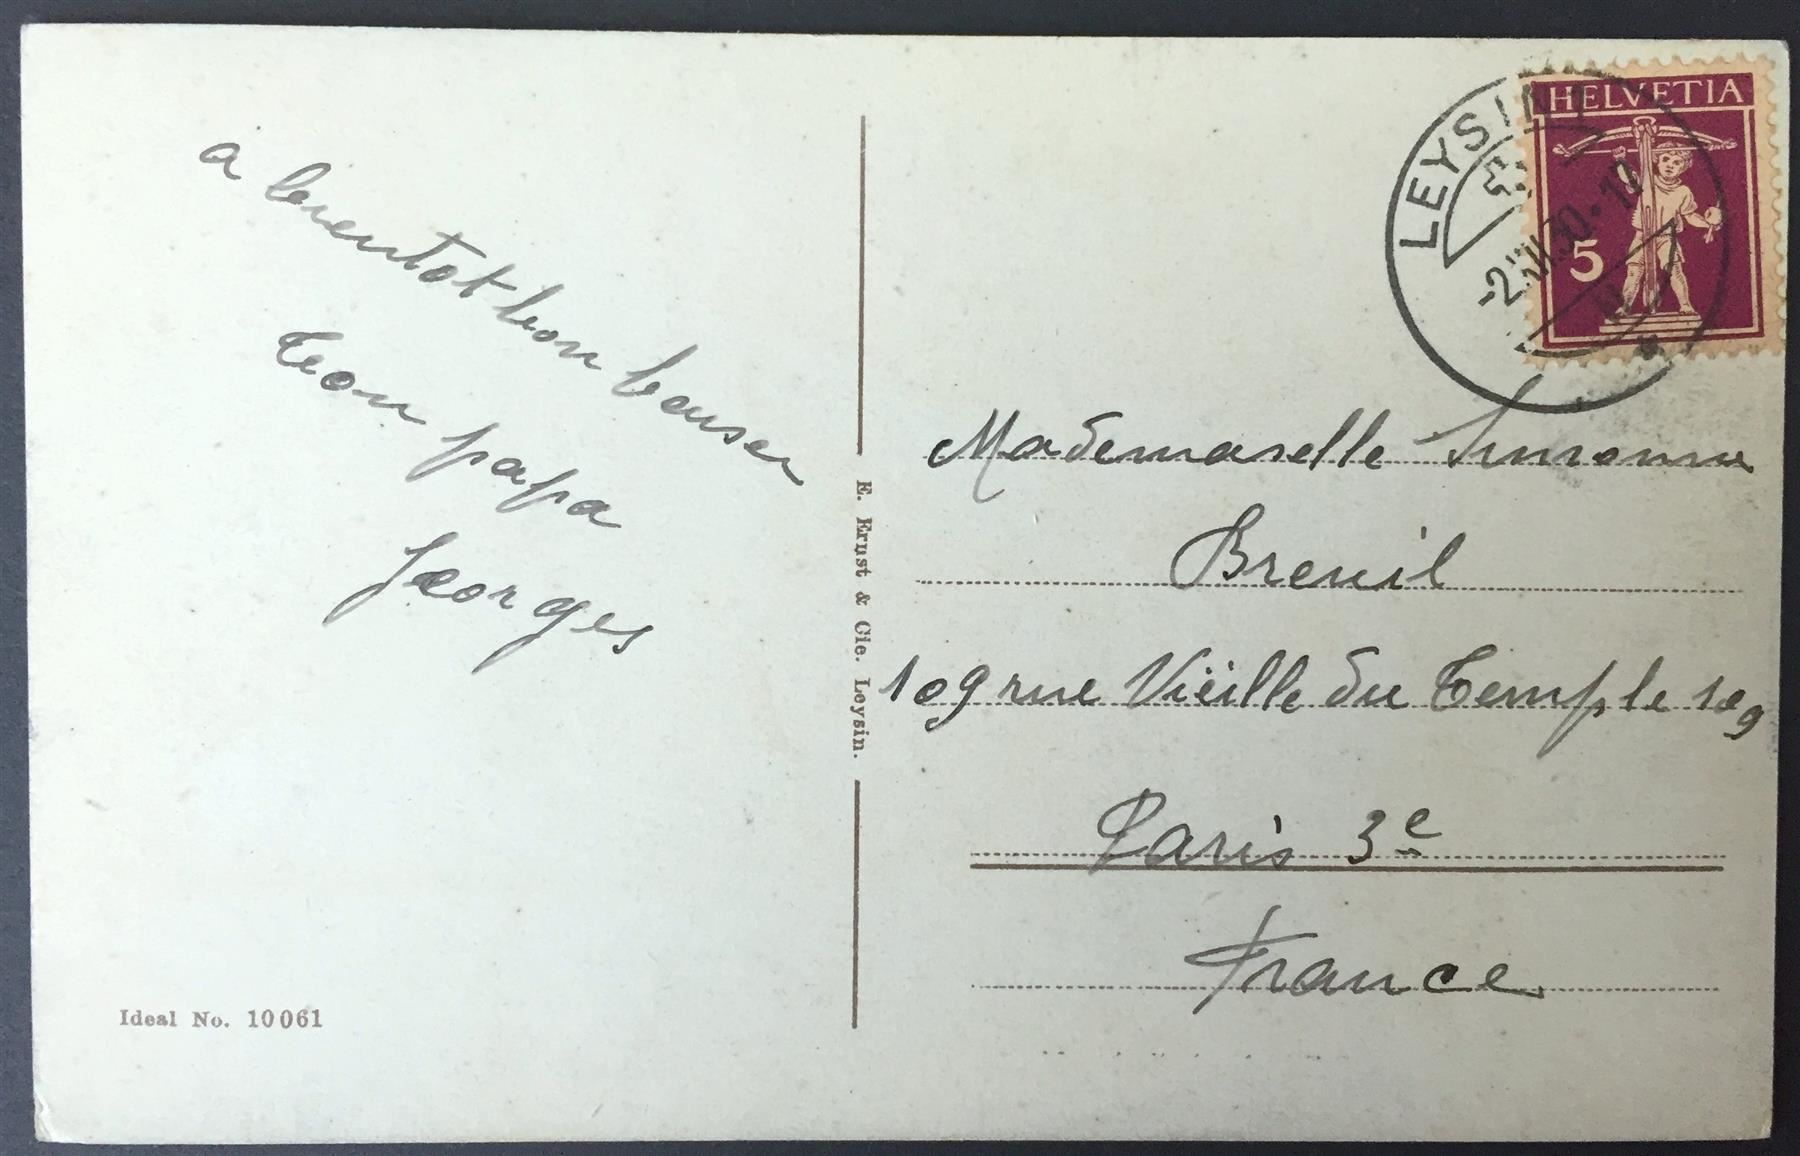 a bientot bon baiser
Ton papa
Georges
Ideal No. 10061
E. Ernst & Cie. Leysin.
HELVETIA
5
LEYSIN
Mademoiselle Simonne
Breuil
109 rue Vieille du Temple 109
Paris 3e
France